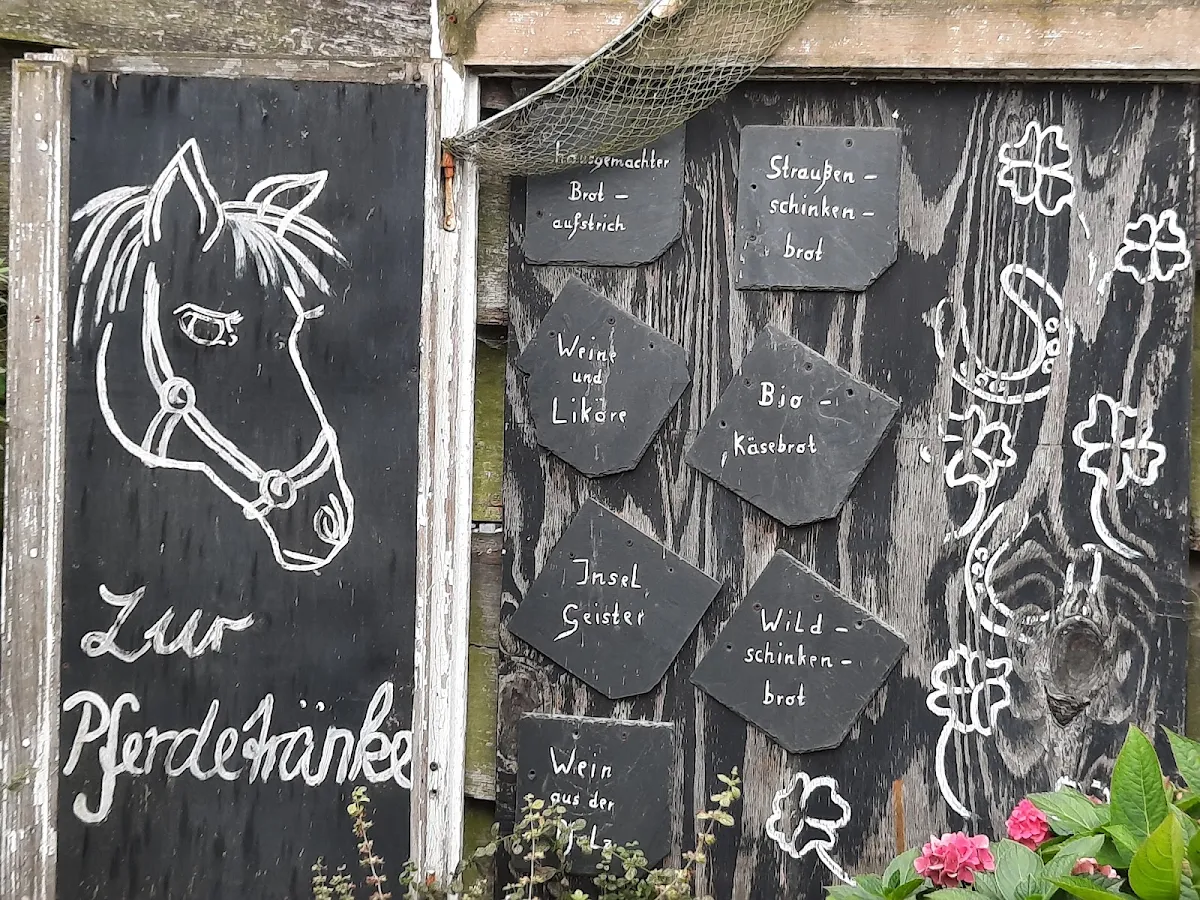 Zur
Pferdetränke
hausgemachter
Brot-
aufstrich
Straußen-
schinken-
brot
Weine
und
Liköre
Bio-
Käsebrot
Insel
Geister
Wild-
schinken-
brot
Wein
aus der
Pfalz